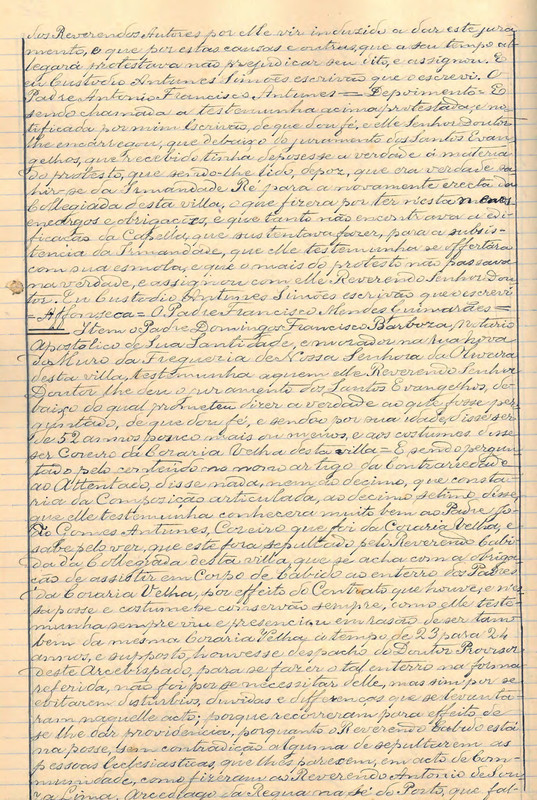 dos Reverendos Autores por elle vir induzido a dar este jura-
mento, e que por estas causas e outras, que a seu tempo al-
legará protestava não prejudicar seu , e assignou. E
eu Custodio Antunes Simões escrivão que o escrevi. O
Padre Antonio Francisco Antunes = Depoimento = E
sendo chamada a testemunha acima protestada, e no-
tificada por mim Escrivão, de que dou fé, e elle Senhor Doutor
lhe encarregou, que debaixo do juramento dos Santos Evan-
gelhos, que recebido tinha depozesse a verdade á materia
do protesto, que sendo-lhe lido, depoz, que era verdade sa-
hir-se da Irmandade Ré para a novamente erecta da
Collegiada desta villa, o que fizera por ter nesta menos
encargos e obrigações, e que tanto não encontrava a edi-
ficação da Capella, que sustentava fazer, para a subsis-
tencia da Irmandade, que elle testemunha se offertára
com sua esmola, e que o mais do protesto não passava
na verdade, e assignou com elle Reverendo Senhor Dou-
tor. Eu Custodio Antunes Simões escrivão que o escrevi
= Affonseca = O Padre Francisco Mendes Guimarães =
Item o Padre Domingos Francisco Barboza, Notario
Apostolico de Sua Santidade, e morador na rua nova
do Muro da Freguezia de Nossa Senhora da Oliveira
desta villa, testemunha a quem elle Reverendo Senhor
Doutor lhe deu o juramento dos Santos Evangelhos, de-
baixo do qual prometeu dizer a verdade ao q lhe fosse per-
guntado, de que dou fé, e sendo por sua idade, disse ser
de 52 annos pouco mais ou menos, e aos costumes disse
ser Coreiro da Coraria Velha desta villa = E sendo pergun-
tado pelo conteudo no nono artigo da Contrariedade
ao Attentado, disse nada, nem ao decimo, que consta-
ria da Composição articulada, ao decimo setimo, disse,
que elle testemunha conhecera muito bem ao Padre Jo-
ão Gomes Antunes, Coreiro que foi da Coraria Velha, e
sabe pelo ver, que este fora sepultado pelo Reverendo Cabi-
do da Collegiada desta villa, que se acha com a obriga-
ção de assistir em Corpo de Cabido ao enterro dos Padres
da Coraria Velha, por effeito do Contrato que houve, e nes-
sa posse e costume se conservão sempre, como elle teste-
munha sempre viu e presenciou em rasão de ser tam-
bem da mesma Coraria Velha, ha tempo de 23 para 24
annos, e supposto houvesse despacho do Doutor Provisor
deste Arcebispado, para se fazer o tal enterro na forma
referida, não foi por se necessitar delle, mas sim por se
evitarem disturbios, duvidas e differenças que se levanta-
ram naquelle acto; porque recorreram para effeito de
se lhe dar providencia, porquanto o Reverendo Cabido está
na posse, sem contradição alguma de sepultarem as
pessoas Ecclesiasticas, que lhes parecem, em acto de Com-
munidade, como fizeram ao Reverendo Antonio de Sou-
za Lima, Arcediago da Regua na Sé do Porto, que fal-